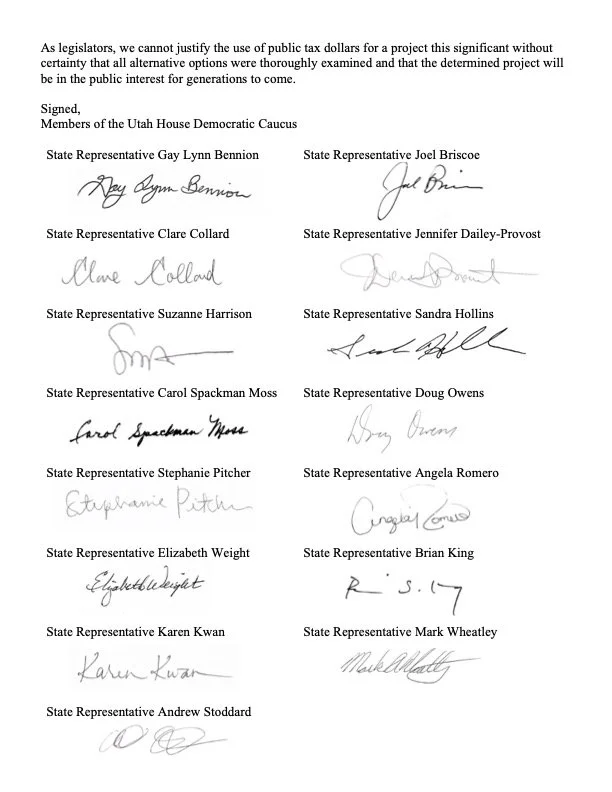 As legislators, we cannot justify the use of public tax dollars for a project this significant without
certainty that all alternative options were thoroughly examined and that the determined project will
be in the public interest for generations to come.
Signed,
Members of the Utah House Democratic Caucus
State Representative Gay Lynn Bennion
State Representative Joel Briscoe
Gay Lynn Bennion
State Representative Clare Collard
State Representative Jennifer Dailey-Provost
Clare Collard
State Representative Suzanne Harrison
State Representative Sandra Hollins
State Representative Carol Spackman Moss
State Representative Doug Owens
Carol Spackman Moss
Doug Owens
State Representative Stephanie Pitcher
State Representative Angela Romero
Stephanie Pitcher
Angela Romero
State Representative Elizabeth Weight
State Representative Brian King
Elizabeth Weight
State Representative Karen Kwan
State Representative Mark Wheatley
Karen Kwan
State Representative Andrew Stoddard